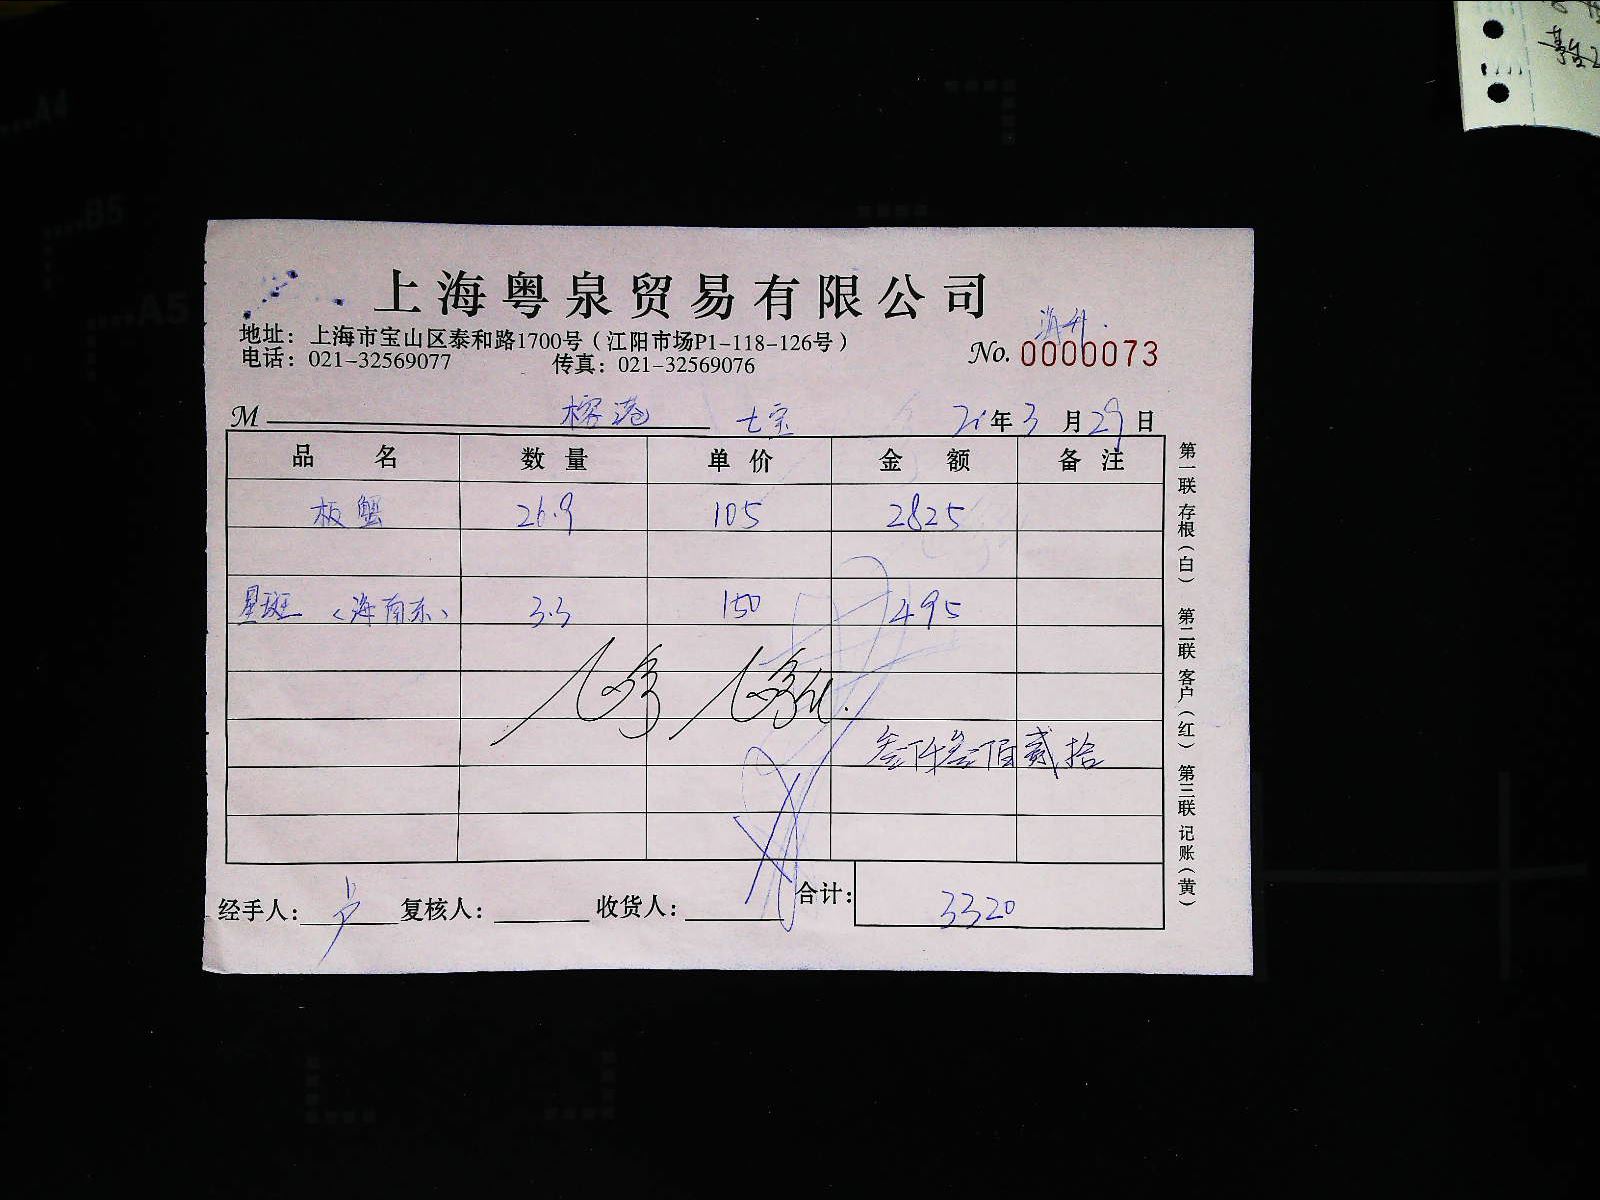 上海粤泉贸易有限公司
地址：上海市宝山区泰和路1700号（江阳市场P1-118-126号）
电话：021-32569077 传真：021-32569076
No. 0000073
M 榕港 七宝 21年3月29日
品名 数量 单价 金额 备注
板蟹 26.9 105 2825
星斑（海南东） 3.3 150 495
叁仟叁佰贰拾
经手人：卢 复核人： 收货人： 合计：3320
第一联 存根（白） 第二联 客户（红） 第三联 记账（黄）
A4
B5
A5